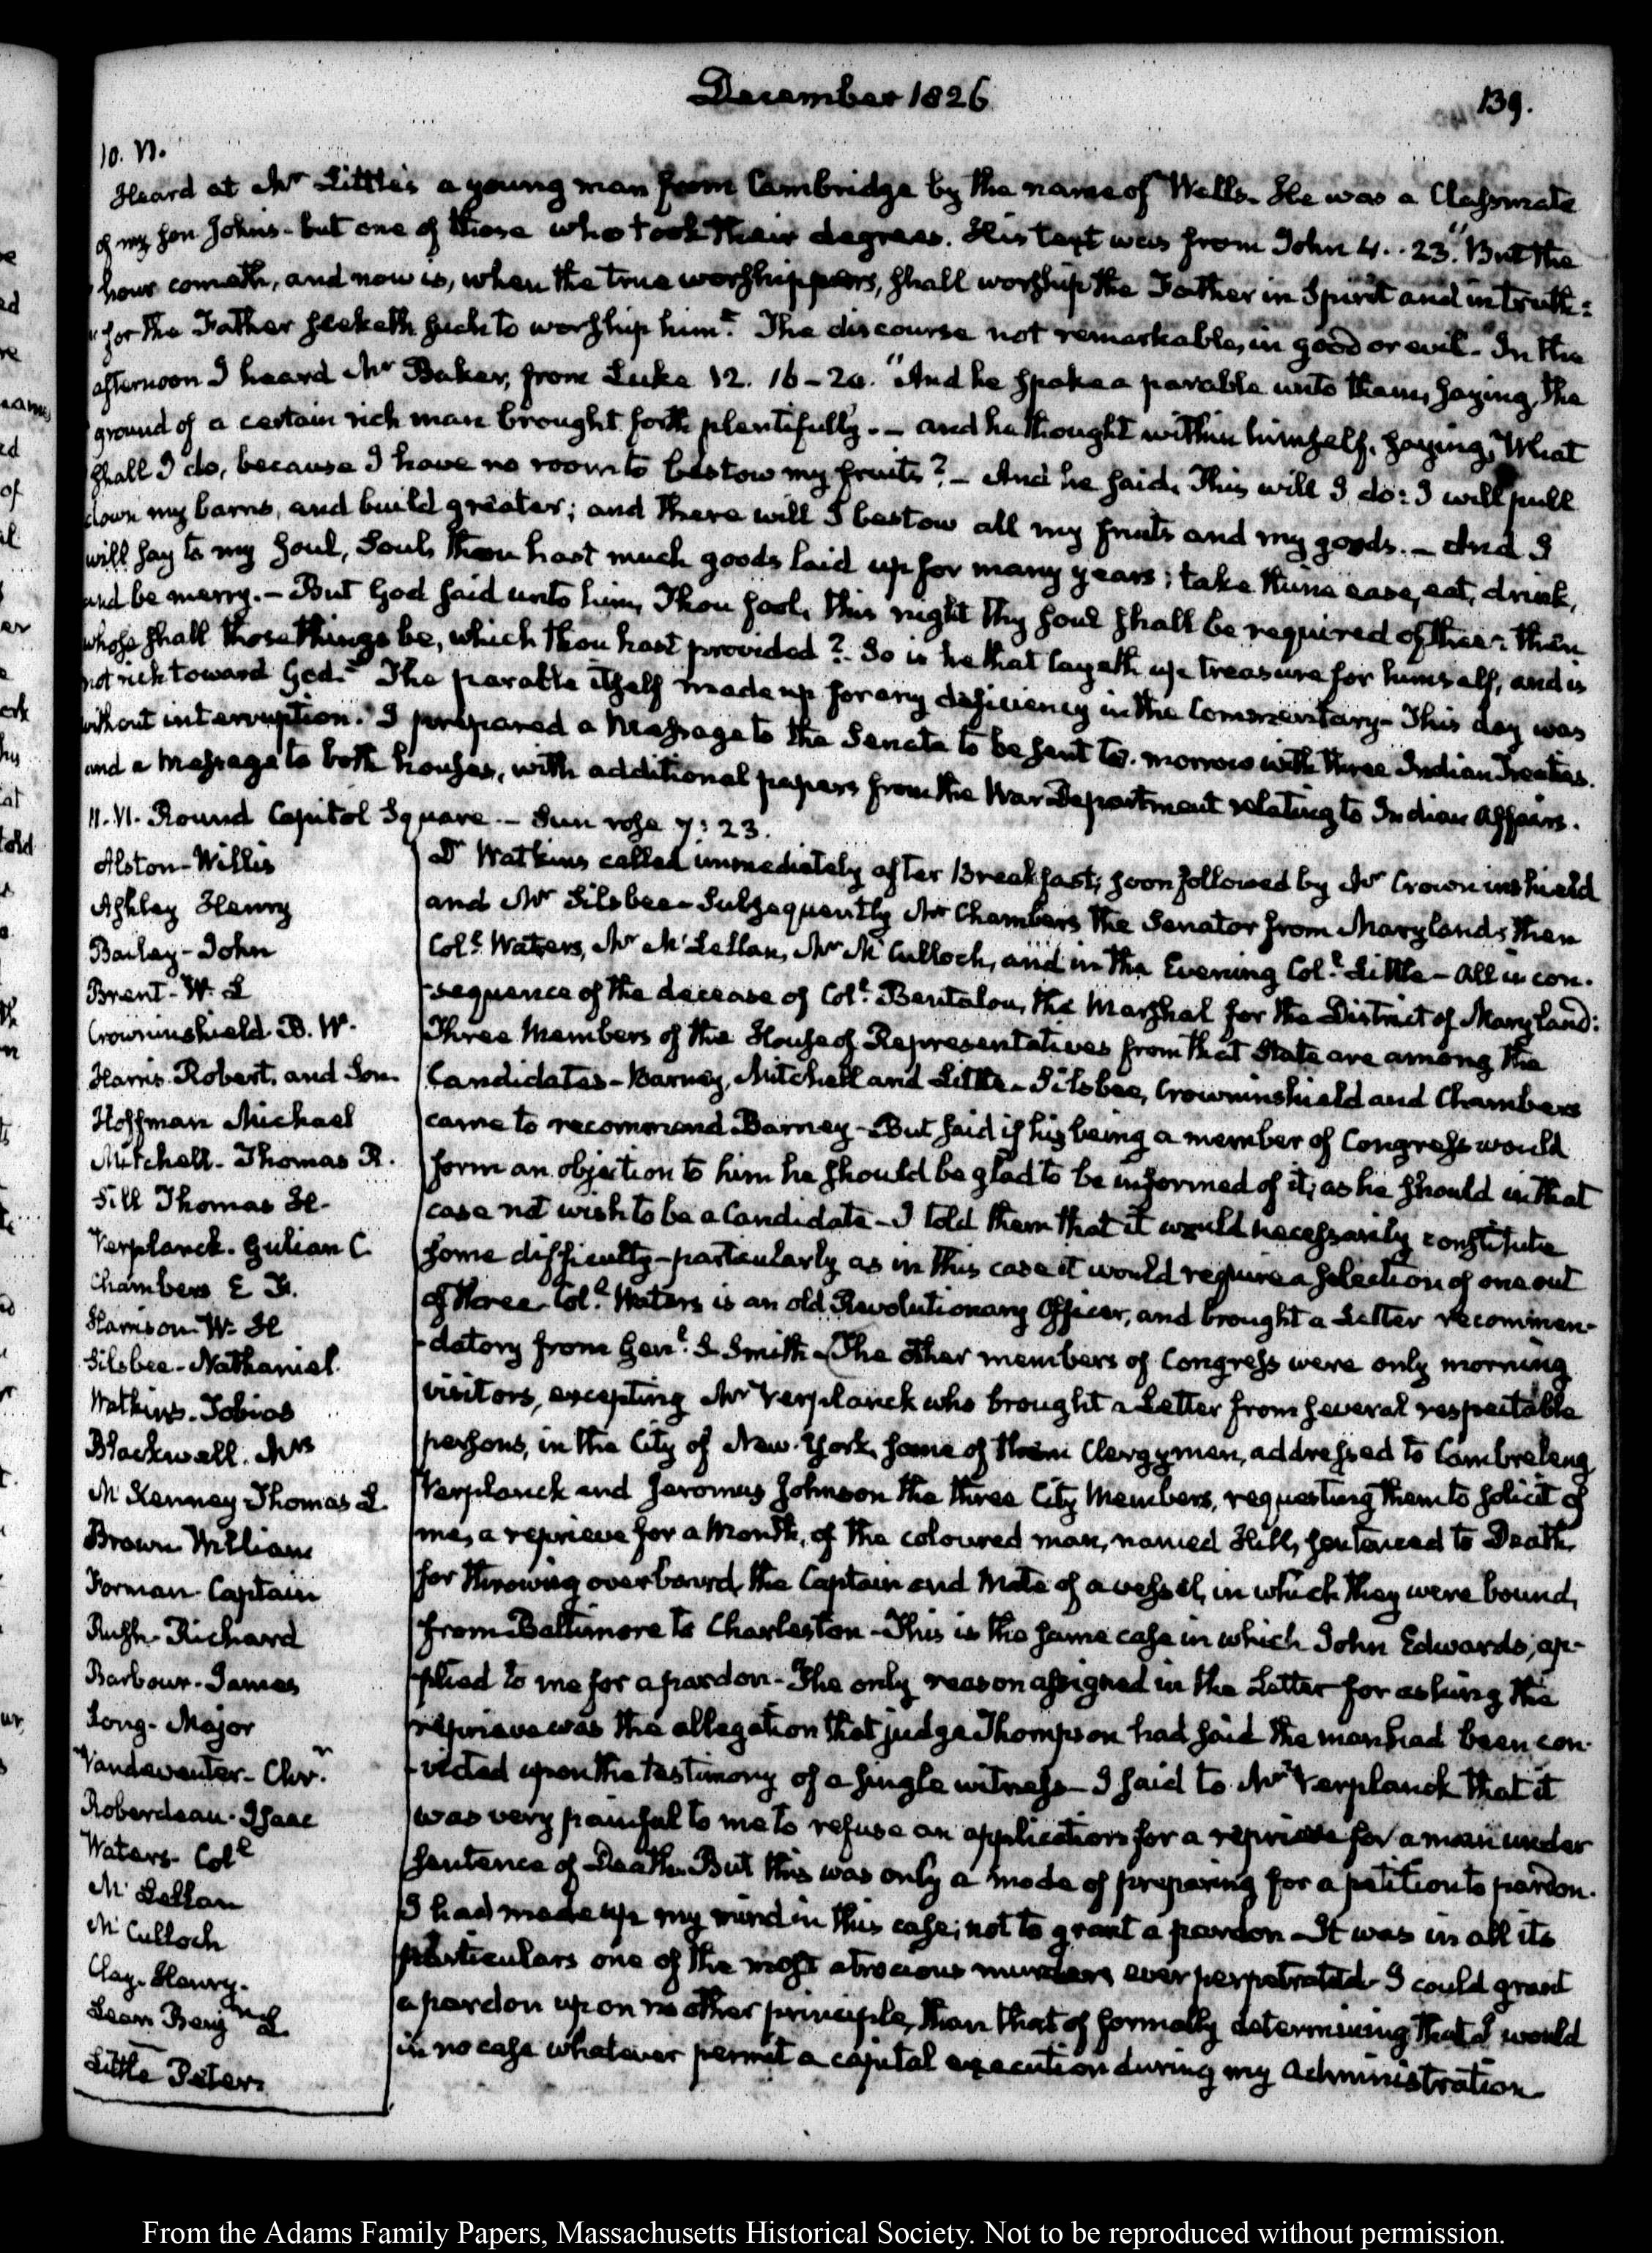 December 1826
139.
10. VI.
Heard at Mr Little's a young man from Cambridge by the name of Wells. He was a Classmate
of my Son John's - but one of those who took their degrees. His text was from John 4. . 23. "But the
hour cometh, and now is, when the true worshippers, shall worship the Father in Spirit and in truth:
"for the Father seeketh such to worship him." The discourse not remarkable, in good or evil. In the
afternoon I heard Mr Baker, from Luke 12. 16-20. "And he spake a parable unto them, saying, The
ground of a certain rich man brought forth plentifully. - and he thought within himself, saying, What
shall I do, because I have no room to bestow my fruits? - And he said, This will I do: I will pull
down my barns, and build greater; and there will I bestow all my fruits and my goods. - And I
will say to my Soul, Soul, thou hast much goods laid up for many years; take thine ease, eat, drink,
and be merry. - But God said unto him, Thou fool, this night thy Soul shall be required of thee: then
whose shall those things be, which thou hast provided? - So is he that layeth up treasure for himself, and is
not rich toward God." The parable itself made up for any deficiency in the Commentary - This day was
without interruption. I prepared a Message to the Senate to be sent to-morrow with three Indian Treaties.
and a Message to both houses, with additional papers from the War Department relating to Indian Affairs.
11. VI. Round Capitol Square. - Sun rose 7:23.
Alston - Willis
Ashley Henry
Bailey - John
Brent - W. L
Crowninshield. B. W.
Harris. Robert, and Son.
Hoffman Michael
Mitchell. Thomas R.
Sill Thomas H.
Verplanck. Gulian C.
Chambers E F.
Harrison W. H
Silsbee - Nathaniel.
Watkins. Tobias
Blackwell. Mrs
McKenney Thomas L.
Brown William
Forman Captain
Rush - Richard
Barbour. James
Long - Major
Vandeventer - Chr.
Roberdeau. Isaac
Waters - Coll
McLellan
McCulloch
Clay. Henry.
Lear Benj L.
Little Peter.
Dr Watkins called immediately after Breakfast; soon followed by Mr Crowninshield
and Mr Silsbee - Subsequently Mr Chambers the Senator from Maryland; then
Coll Waters, Mr McLellan, Mr McCulloch, and in the Evening Coll Little - All in con-
-sequence of the decease of Coll Bentalou, the Marshal for the District of Maryland:
Three Members of the House of Representatives from that State are among the
Candidates - Barney, Mitchell and Little - Silsbee, Crowninshield and Chambers
came to recommend Barney - But said if his being a member of Congress would
form an objection to him he should be glad to be informed of it; as he should in that
case not wish to be a Candidate - I told them that it would necessarily constitute
some difficulty - particularly as in this case it would require a selection of one out
of three. Coll Waters is an old Revolutionary Officer, and brought a Letter recommen-
-datory from Genl S. Smith - The other members of Congress were only morning
visitors, excepting Mr Verplanck who brought a Letter from several respectable
persons, in the City of New-York, some of them Clergymen, addressed to Cambreleng
Verplanck and Jeromus Johnson the three City Members, requesting them to solicit of
me, a reprieve for a Month, of the coloured man, named Hill, sentenced to Death,
for throwing overboard the Captain and Mate of a vessel, in which they were bound,
from Baltimore to Charleston - This is the same case in which John Edwards, ap-
-plied to me for a pardon - The only reason assigned in the Letter for asking the
reprieve was the allegation that judge Thompson had said the man had been con-
-victed upon the testimony of a single witness - I said to Mr Verplanck that it
was very painful to me to refuse an application for a reprieve for a man under
sentence of Death. But this was only a mode of preparing for a petition to pardon.
I had made up my mind in this case, not to grant a pardon - It was in all its
particulars one of the most atrocious murders ever perpetrated - I could grant
a pardon upon no other principle, than that of formally determining that I would
in no case whatever permit a capital execution during my administration
From the Adams Family Papers, Massachusetts Historical Society. Not to be reproduced without permission.